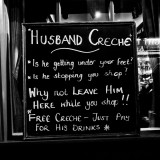 "HUSBAND CRECHE"
* Is he getting under your feet?
* Is he stopping you shop?
Why not LEAVE HIM
HERE while you shop!!
* FREE CRECHE - JUST PAY
FOR HIS DRINKS *